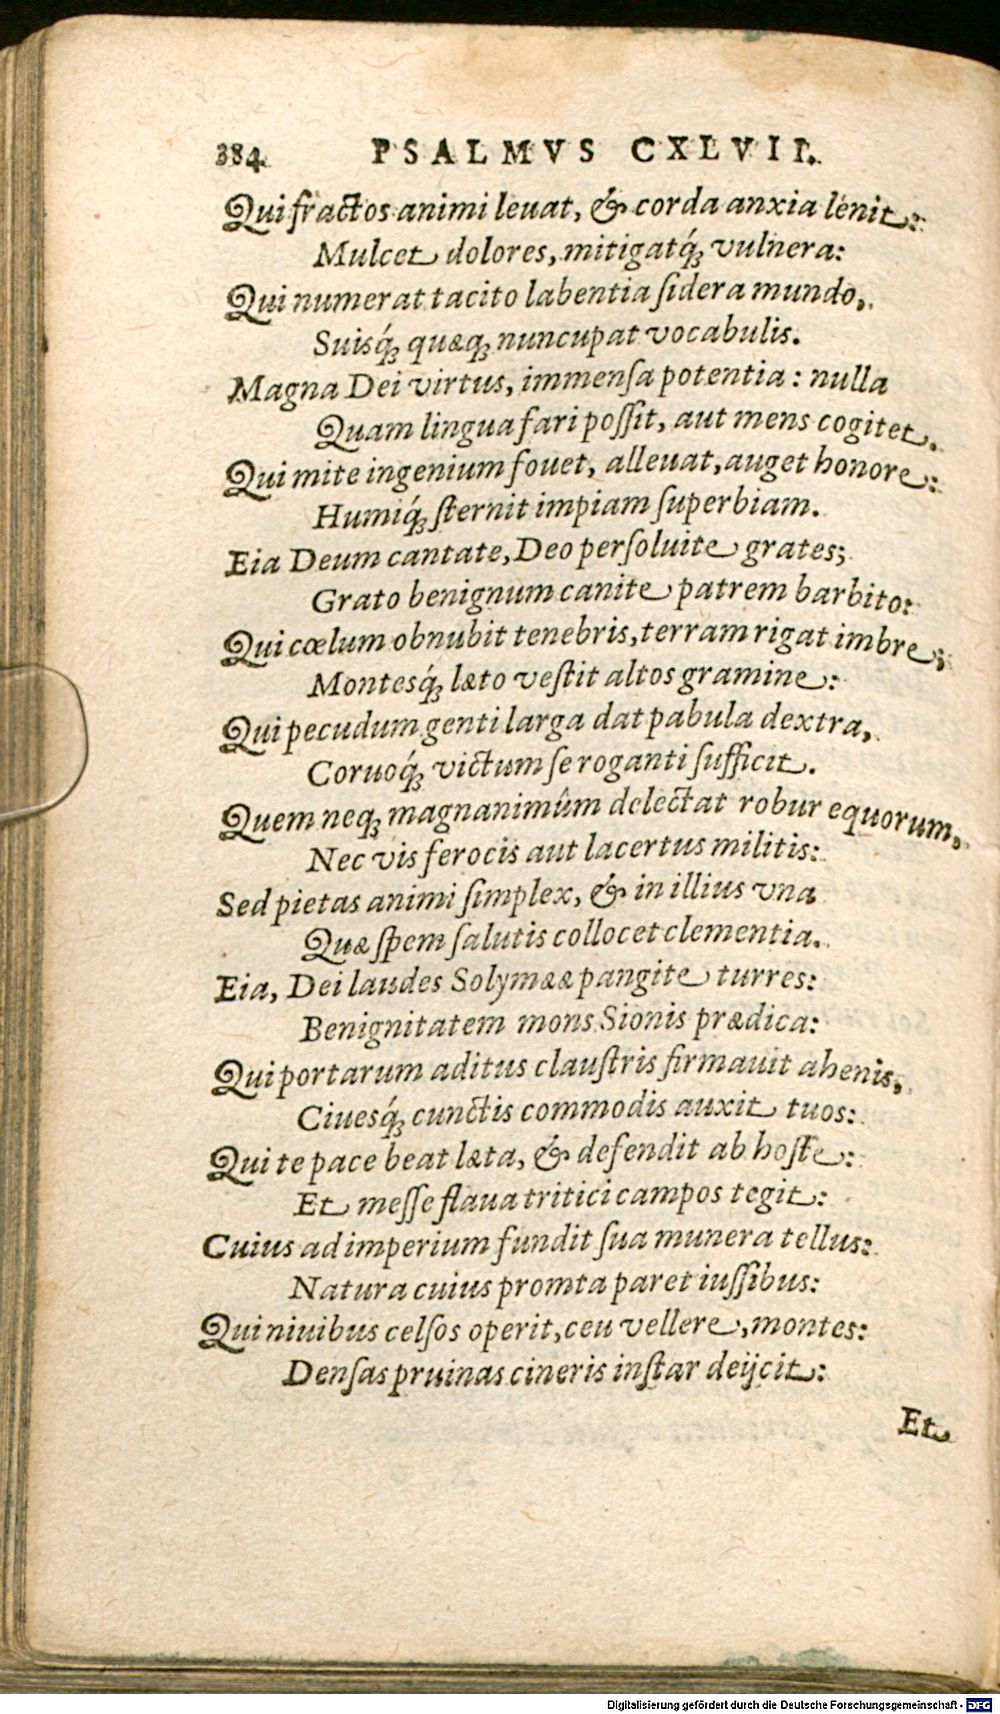 384 PSALMVS CXLVII.
Qui fractos animi leuat, & corda anxia lenit:
Mulcet dolores, mitigatq́; vulnera:
Qui numerat tacito labentia ſidera mundo,
Suisq́; quæq; nuncupat vocabulis.
Magna Dei virtus, immenſa potentia: nulla
Quam lingua fari poſſit, aut mens cogitet.
Qui mite ingenium fouet, alleuat, auget honore:
Humiq́; ſternit impiam ſuperbiam.
Eia Deum cantate, Deo perſoluite grates;
Grato benignum canite patrem barbito:
Qui cœlum obnubit tenebris, terram rigat imbre;
Montesq́; læto veſtit altos gramine:
Qui pecudum genti larga dat pabula dextra,
Coruoq́; victum ſe roganti ſufficit.
Quem neq; magnanimûm delectat robur equorum,
Nec vis ferocis aut lacertus militis:
Sed pietas animi ſimplex, & in illius vna
Quæ ſpem ſalutis collocet clementia.
Eia, Dei laudes Solymææ pangite turres:
Benignitatem mons Sionis prædica:
Qui portarum aditus clauſtris firmauit ahenis,
Ciuesq́; cunctis commodis auxit tuos:
Qui te pace beat læta, & defendit ab hoſte:
Et meſſe flaua tritici campos tegit:
Cuius ad imperium fundit ſua munera tellus:
Natura cuius promta paret iuſſibus:
Qui niuibus celſos operit, ceu vellere, montes:
Denſas pruinas cineris inſtar deijcit:
Et
Digitalisierung gefördert durch die Deutsche Forschungsgemeinschaft - DFG